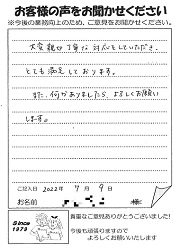 お客様の声をお聞かせください
※今後の業務向上のため、ご意見をお聞かせください。
大変親切丁寧な対応をしていただき、
とても満足しております。
また、何かありましたら、よろしくお願い
します。
ご記入日 2022年 7月 9日
お名前
Since
1979
貴重なご意見ありがとうございました!
今後も頑張りますので
よろしくお願いいたします